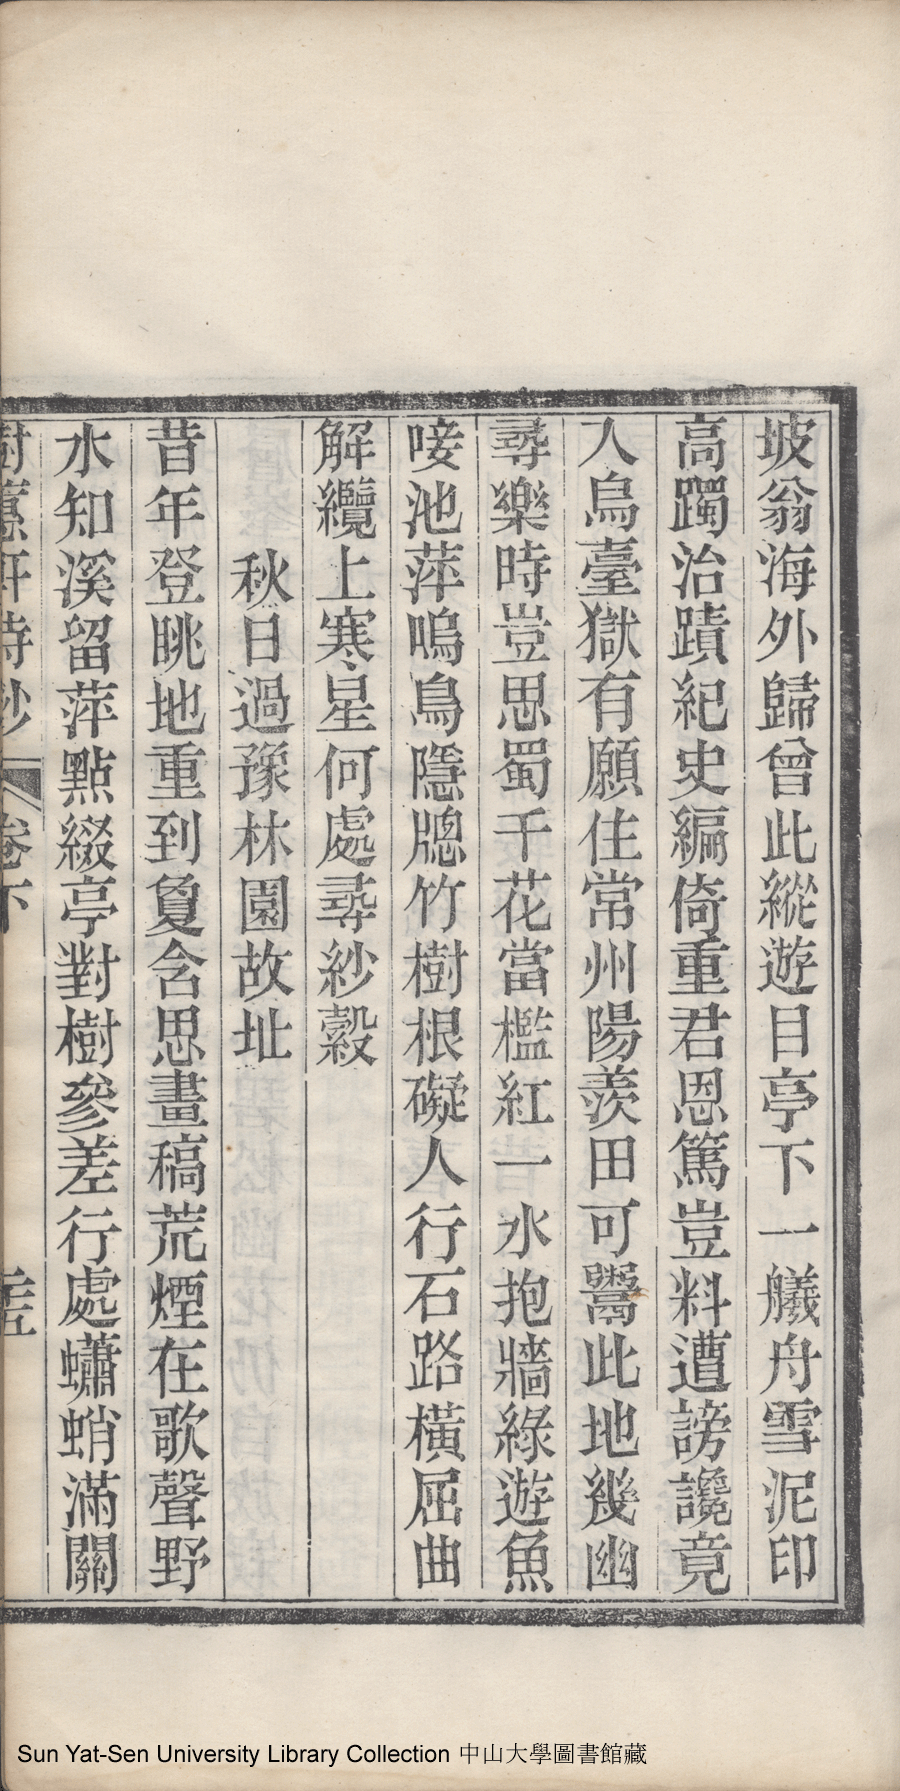 坡翁海外歸曾此縱遊目亭下一艤舟雪泥印
高躅治蹟紀史編倚重君恩篤豈料遭謗讒竟
入烏臺獄有願住常州陽羨田可鬻此地幾幽
尋樂時豈思蜀千花當檻紅一水抱牆綠遊魚
唼池萍鳴鳥隱牕竹樹根礙人行石路橫屈曲
解纜上寒星何處尋紗縠
秋日過豫林園故址
昔年登眺地重到敻含思畫稿荒煙在歌聲野
水知溪留萍點綴亭對樹參差行處蠨蛸滿關
樹蕙軒詩鈔 卷下 二十五
Sun Yat-Sen University Library Collection 中山大學圖書館藏